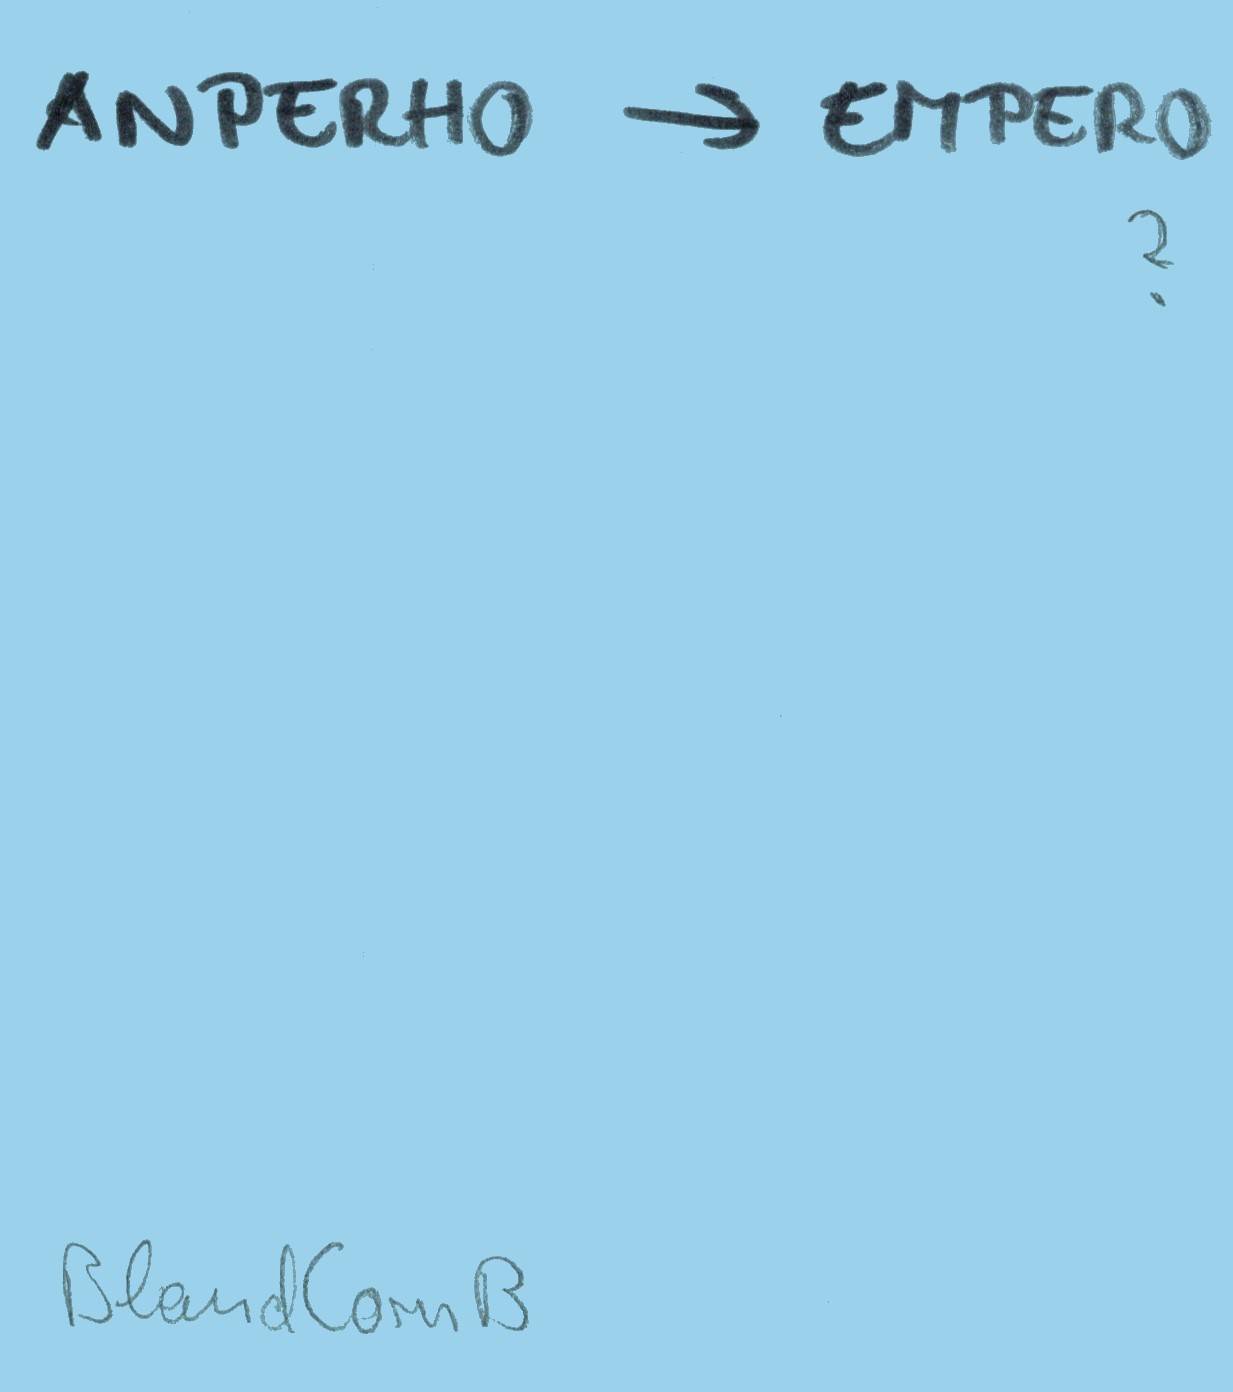 ANPERHO → EMPERO
?
BlandCornB